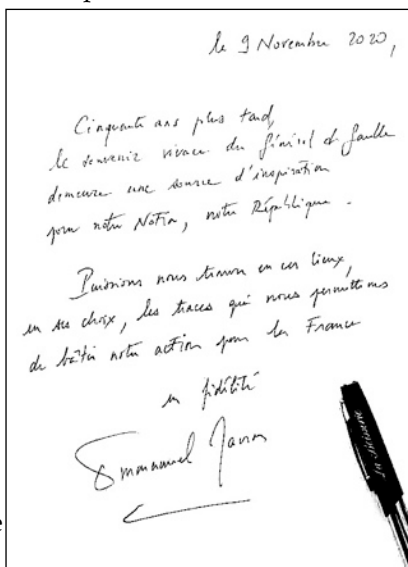 le 9 Novembre 2020,
Cinquante ans plus tard,
le souvenir vivace du Général de Gaulle
demeure une source d'inspiration
pour notre Nation, notre République.
Puissions nous trouver en ces lieux,
en ses choix, les traces qui nous permettrons
de bâtir notre action pour la France
en fidélité
Emmanuel Macron
La Boisserie
e